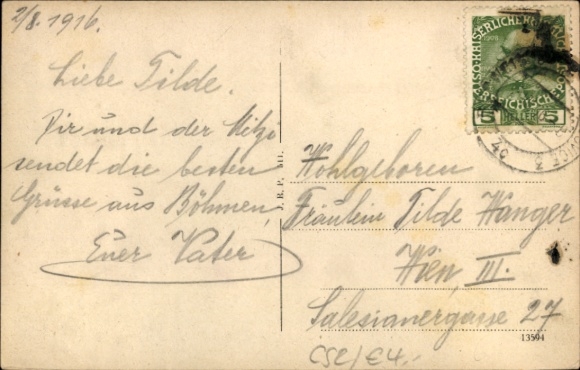 2/8. 1916.
Liebe Tilde.
Dir und der Mitzi
sendet die besten
Grüsse aus Böhmen,
Euer Vater
J.R.P.
Wohlgeboren
Fräulein Tilde Wanger
Wien, III.
Salesianergasse 27
13594
CSL/€4,-
KAISERLICHE
1908
5 HELLER 5
40